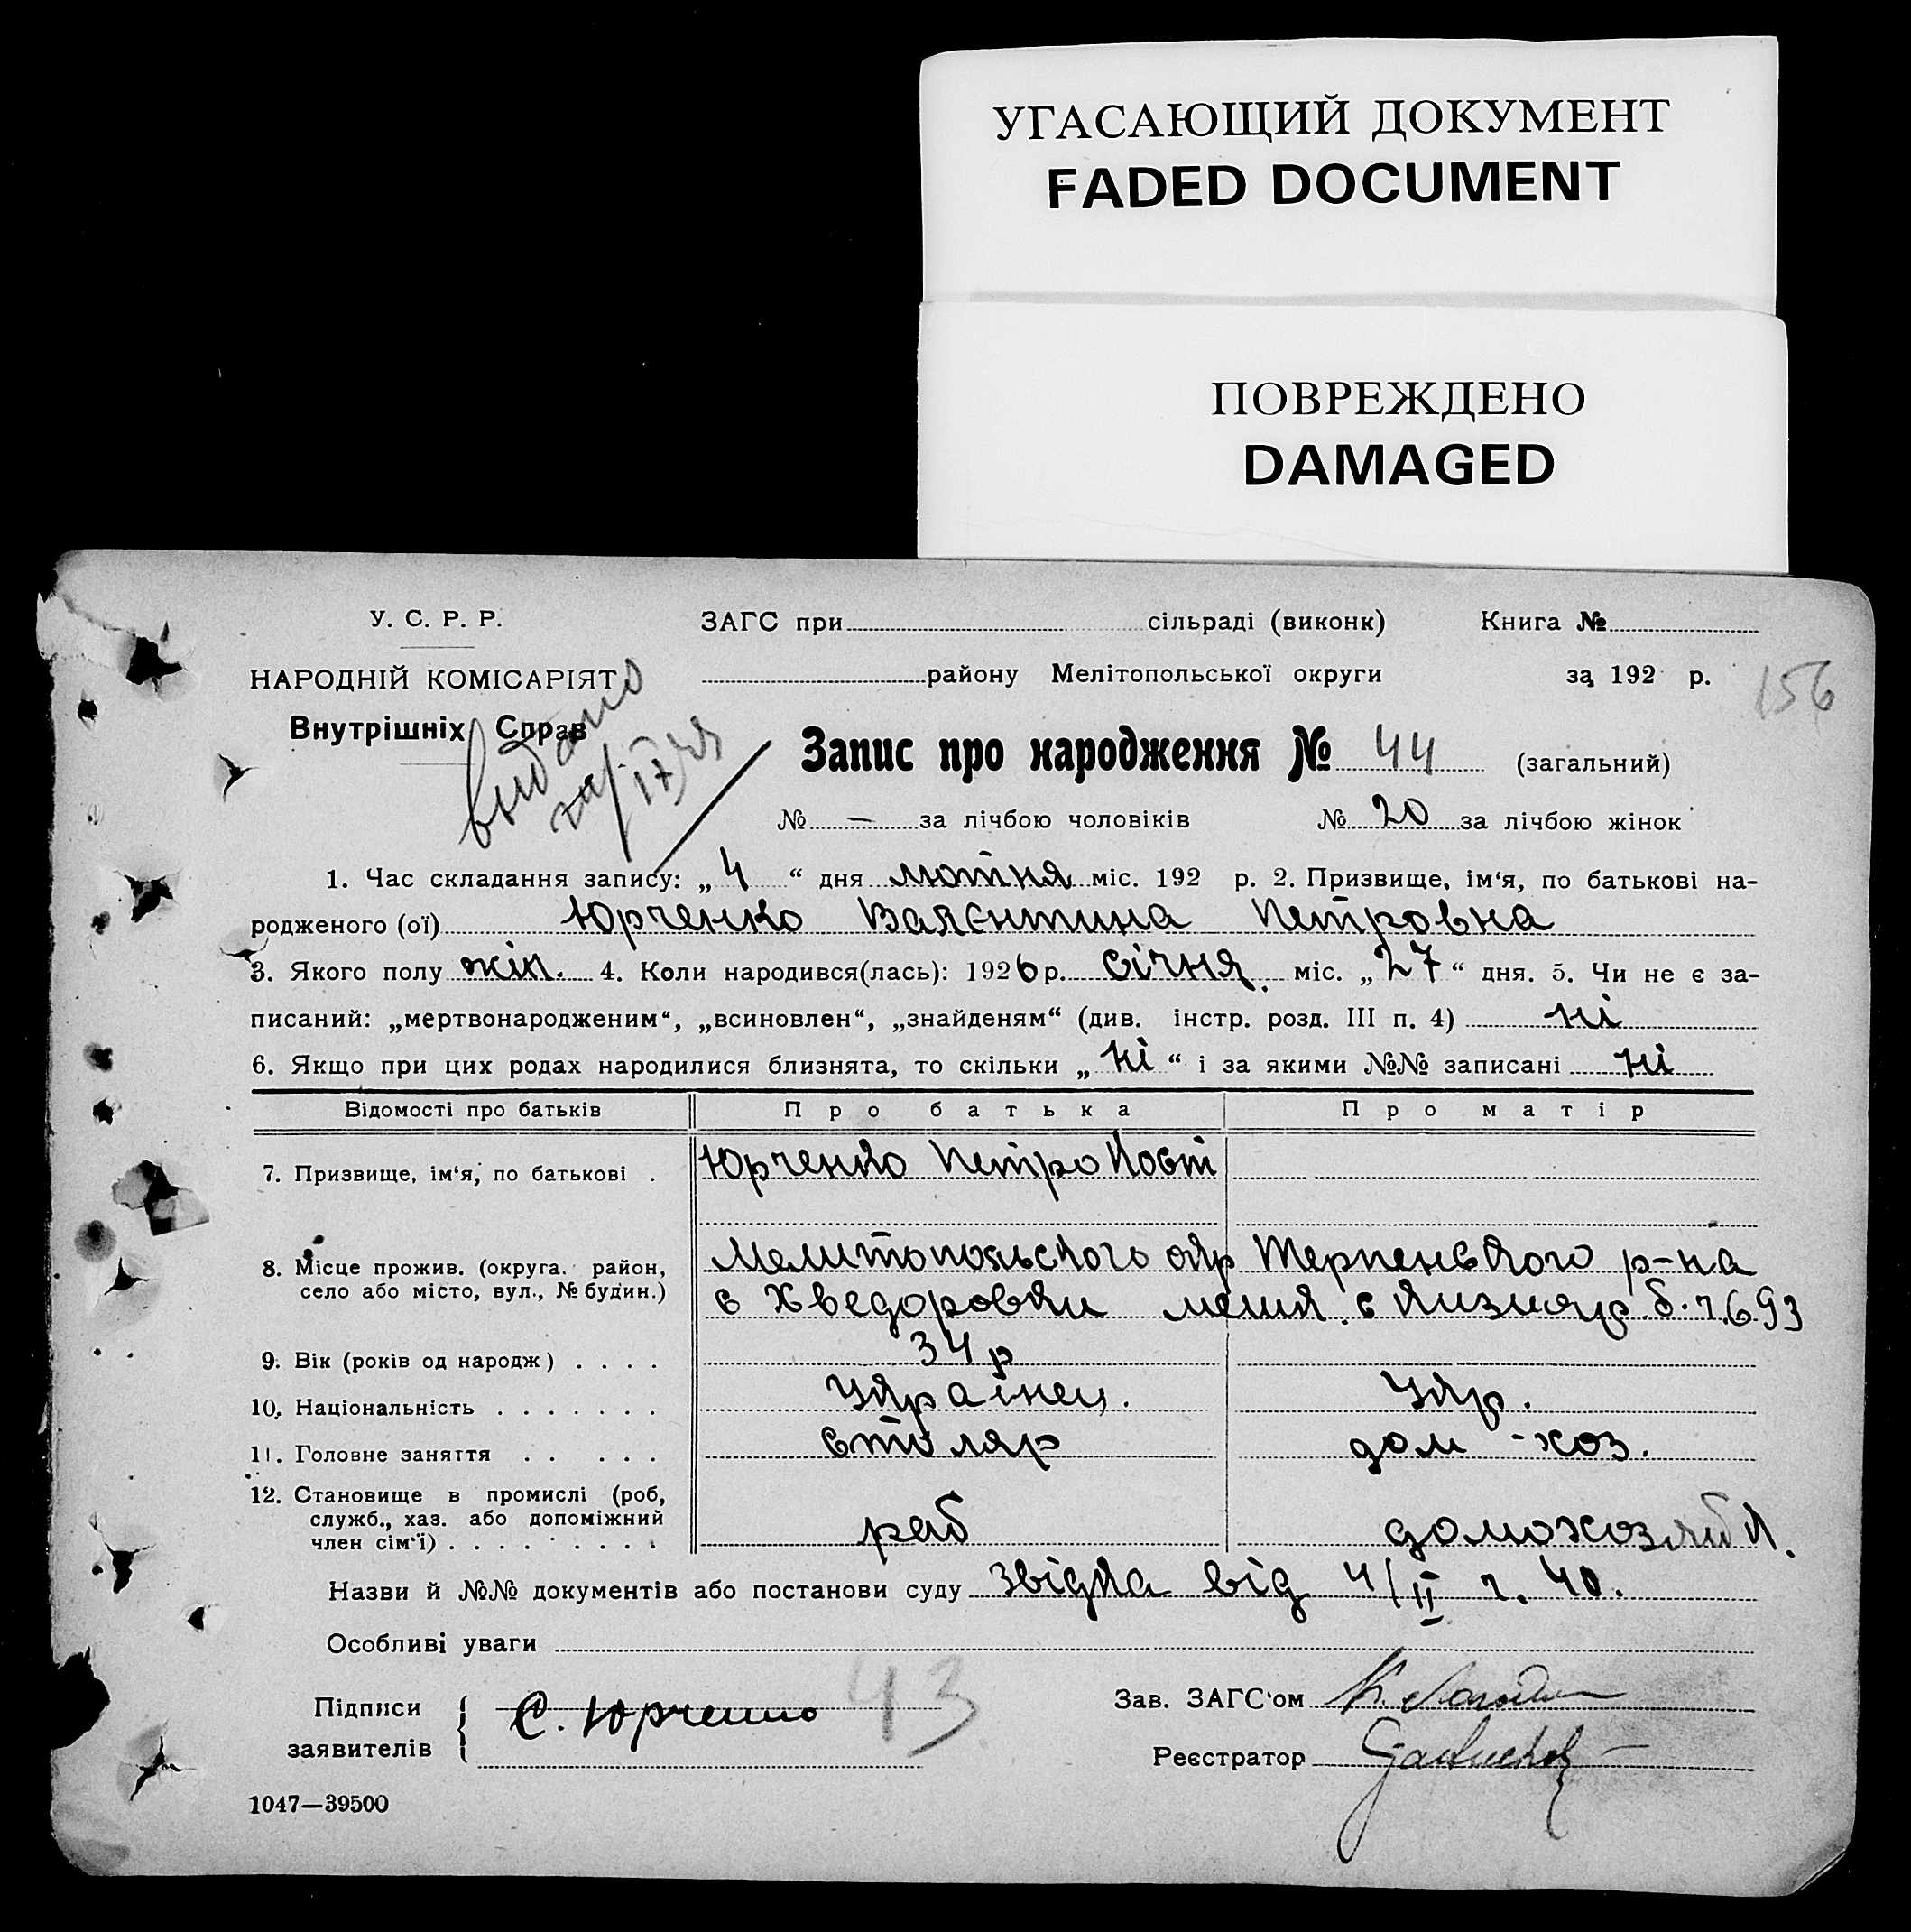 УГАСАЮЩИЙ ДОКУМЕНТ
FADED DOCUMENT
ПОВРЕЖДЕНО
DAMAGED
У. С. Р. Р. ЗАГС при сільраді (виконк) Книга №
НАРОДНІЙ КОМІСАРІЯТ району Мелітопольської округи за 192 р. 156
Внутрішніх Справ
выдано
Запис про народження № 44 (загальний)
№ — за лічбою чоловіків № 20 за лічбою жінок
1. Час складання запису: „4“ дня мотня міс. 192 р. 2. Призвище, ім‘я, по батькові на-
родженого (ої) Юрченко Валєнтина Петровна
3. Якого полу жін. 4. Коли народився(лась): 1926 р. січня міс. „27“ дня. 5. Чи не є за-
писаний: „мертвонародженим“, „всиновлен“, „знайденям“ (див. інстр. розд. III п. 4) ні
6. Якщо при цих родах народилися близнята, то скільки „ні“ і за якими №№ записані ні
Відомості про батьків Про батька Про матір
7. Призвище, ім‘я, по батькові . Юрченко Петро Кост
8. Місце прожив. (округа. район, Мелитопольского окр Терпенского р-на
село або місто, вул., № будин.) с Хведоровки
9. Вік (років од народж) . . . . 34 р
10. Національність . . . . . . . Українец. Укр.
11. Головне заняття . . . . . столяр дом-хоз.
12. Становище в промислі (роб,
служб., хаз. або допоміжний
член сім‘ї) . . . . . . . . . раб
Назви й №№ документів або постанови суду звідка від 4/II ч. 40.
Особливі уваги
Підписи С. Юрченко 43 Зав. ЗАГС‘ом
заявителів Реєстратор
1047—39500